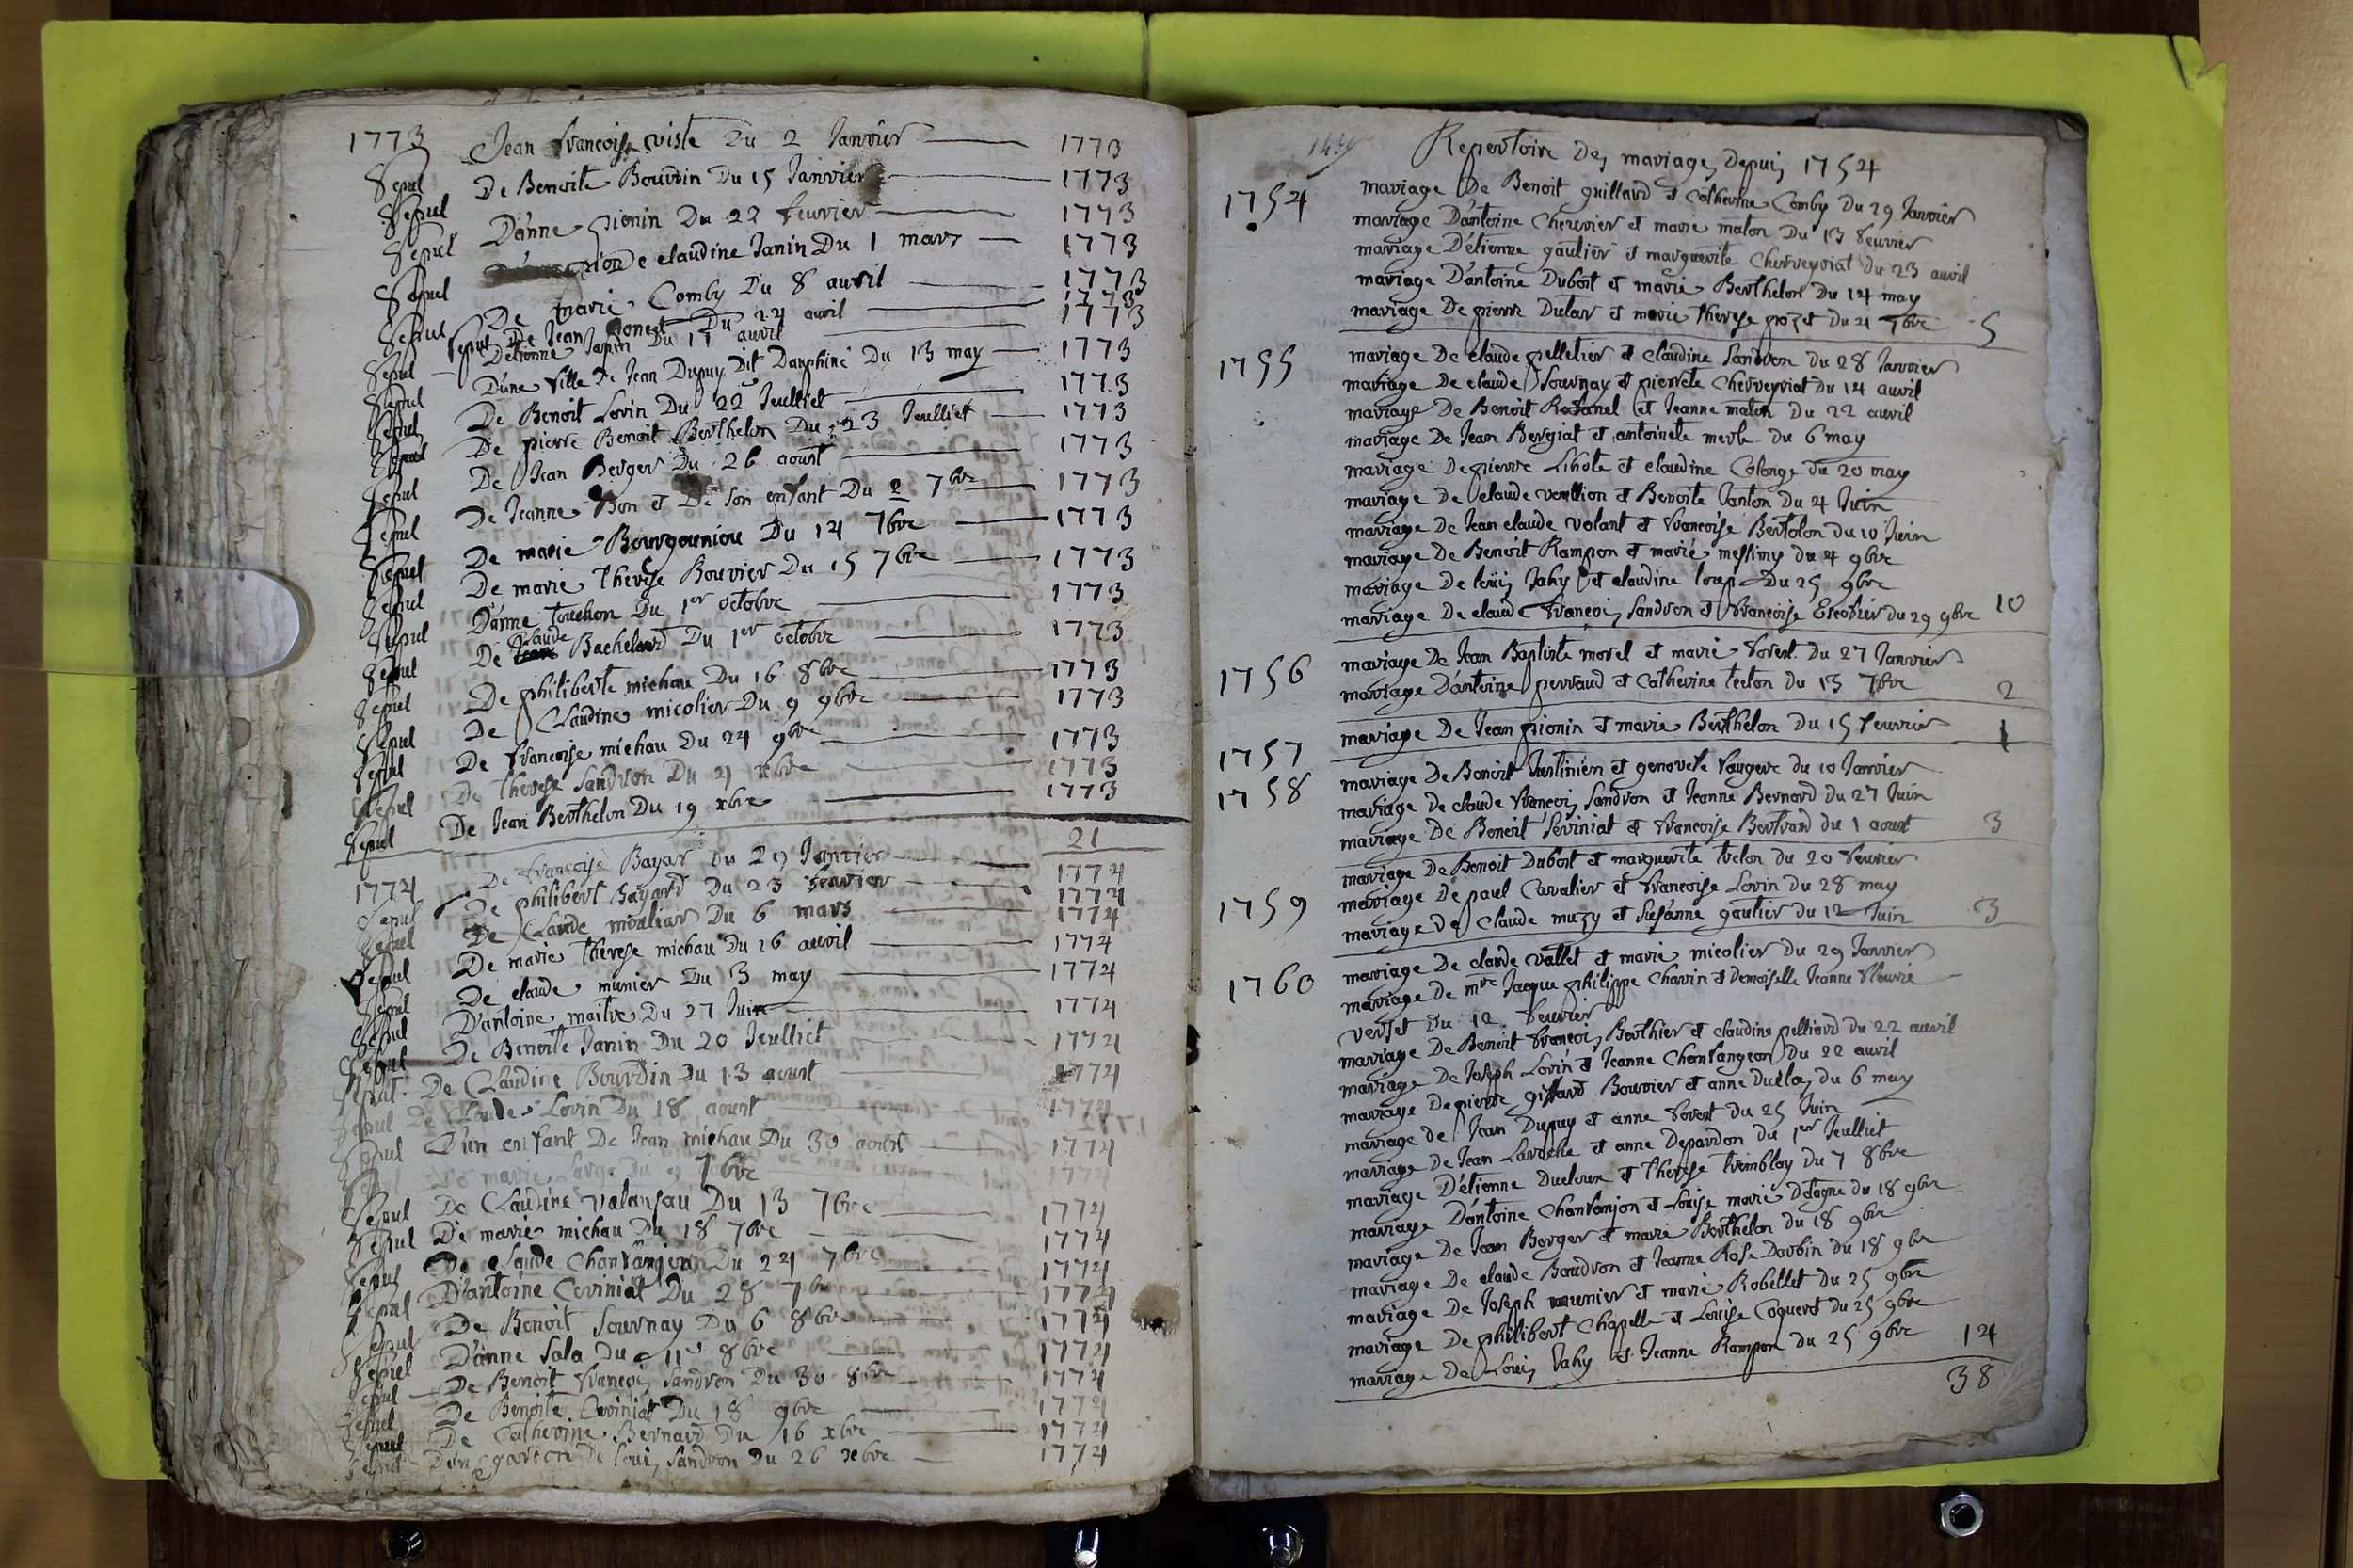 1773 Jean francoise viste Du 2 Janvier 1773
Sepul De Benoite Bourdin Du 15 Janvier 1773
Sepul D'anne pionin Du 22 feuvrier 1773
Sepul De claudine Janin Du 1 mars 1773
Sepul De marie Comby Du 8 avril 1773
Sepul De Jean Du 24 avril 1773
Sepul D'etienne Janin Du 17 avril 1773
Sepul D'une fille De Jean Dupuy Dit Dauphiné Du 13 may 1773
Sepul De Benoit Lorin Du 22 Jeulliet 1773
Sepul De pierre Benoit Berthelon Du 23 Jeulliet 1773
Sepul De Jean Berger Du 26 aoust 1773
Sepul De Jeanne Bon et De Son enfant Du 2 7bre 1773
Sepul De marie Bourgouniou Du 14 7bre 1773
Sepul De marie therese Bouvier Du 15 7bre 1773
Sepul D'anne touchon Du 1er octobre 1773
Sepul De claude Bachelard Du 1er octobre 1773
Sepul De philiberte michau Du 16 8bre 1773
Sepul De Claudine micolier Du 9 9bre 1773
Sepul De francoise michau Du 24 9bre 1773
Sepul De therese Sandron Du 21 xbre 1773
Sepul De Jean Berthelon Du 19 xbre 1773
21
1774 De francoise Bayar Du 29 Janvier 1774
Sepul De philibert Bayard Du 23 feuvrier 1774
Sepul De Claude moulear Du 6 mars 1774
Sepul De marie therese michau Du 16 avril 1774
Sepul De claude munier Du 3 may 1774
Sepul D'antoine maitre Du 27 Juin 1774
Sepul De Benoite Janin Du 20 Jeulliet 1774
Sepul De Claudine Bourdin Du 13 aoust 1774
Sepul De Claude Lorin Du 18 aoust 1774
Sepul D'un enfant De Jean michau Du 30 aoust 1774
De marie Large Du 9 7bre 1774
Sepul De Claudine valansau Du 13 7bre 1774
Sepul De marie michau Du 18 7bre 1774
Sepul De claude Chanfanjeon Du 24 7bre 1774
Sepul D'antoine Ceviniat Du 28 7bre 1774
Sepul De Benoit Sournay Du 6 8bre 1774
Sepul D'anne Sala Du 11 8bre 1774
Sepul De Benoit francois Sandron Du 30 8bre 1774
Sepul De Benoite Ceviniat Du 18 9bre 1774
Sepul De Catherine Bernard Du 16 xbre 1774
Sepul D'un garcon De loui Sandron Du 26 xbre 1774
Repertoire Des mariages Depuis 1754
1754 mariage De Benoit guillard et Catherine Comby Du 29 Janvier
mariage D'antoine Chervier et marie maton Du 13 feuvrier
mariage D'etienne gaulier et marguerite Cherveyriat Du 23 avril
mariage D'antoine Dubost et marie Berthelon Du 14 may
mariage De pierre Dutar et marie therese pozet Du 21 7bre 5
1755 mariage De claude pelletier et claudine Sandron Du 28 Janvier
mariage De claude Sournay et pierrete Cherveyriat Du 14 avril
mariage De Benoit Rofanel et Jeanne maton Du 22 avril
mariage De Jean Bergiat et antoinete merle du 6 may
mariage De pierre Lihote et claudine Colonge du 20 may
mariage De claude veullion et Benoite Janton Du 4 Juin
mariage De Jean claude volant et francoise Bertolon du 10 Juin
mariage De Benoit Rampon et marie messimy du 4 9bre
mariage De loüis Jahy et claudine loup Du 25 9bre
mariage De claud francois Sandron et francoise Escofier du 29 9bre 10
1756 mariage De Jean Baptiste morel et marie forest Du 27 Janvier
mariage D'antoine perraud et Catherine tecton du 13 7bre 2
1757 mariage De Jean pionin et marie Berthelon Du 15 feuvrier 1
1758 mariage De Benoit Jantinien et genovefe faugere du 10 Janvier
mariage de claude francois Sandron et Jeanne Bernard du 27 Juin
mariage De Benoit Seviniat et francoise Bertrand du 1 aoust 3
mariage De Benoit Dubost et marguerite trelon du 20 feuvrier
1759 mariage De paul Cavalier et francoise Lorin du 28 may
mariage De Claude muzy et Susanne gautier du 12 Juin 3
1760 mariage De claude vallet et marie micolier du 29 Janvier
mariage de mre Jacque philippe Charin et Demoiselle Jeanne fleurie
verset Du 12 feuvrier
mariage De Benoit francois Berthier et claudine pelliard du 22 avril
mariage De Joseph Lorin et Jeanne Chanfangeon Du 22 avril
mariage De pierre giffard Bouvier et anne Duclos du 6 may
mariage de Jean Dupuy et anne forest du 25 Juin
mariage de Jean Laroche et anne Depardon du 1er Jeulliet
mariage D'etienne Ducloux et therese tremblay du 7 8bre
mariage D'antoine Chanfanjon et Louise marie Detogne du 18 9bre
mariage De Jean Berger et marie Berthelon du 18 9bre
mariage De claude Boudron et Jeanne Rose Daubin du 18 9bre
mariage De Joseph munier et marie Robellet du 25 9bre
mariage De philibert Chapelle et Louise Coquerd du 25 9bre
mariage De Louis Jahy et Jeanne Rampon du 25 9bre 14
38